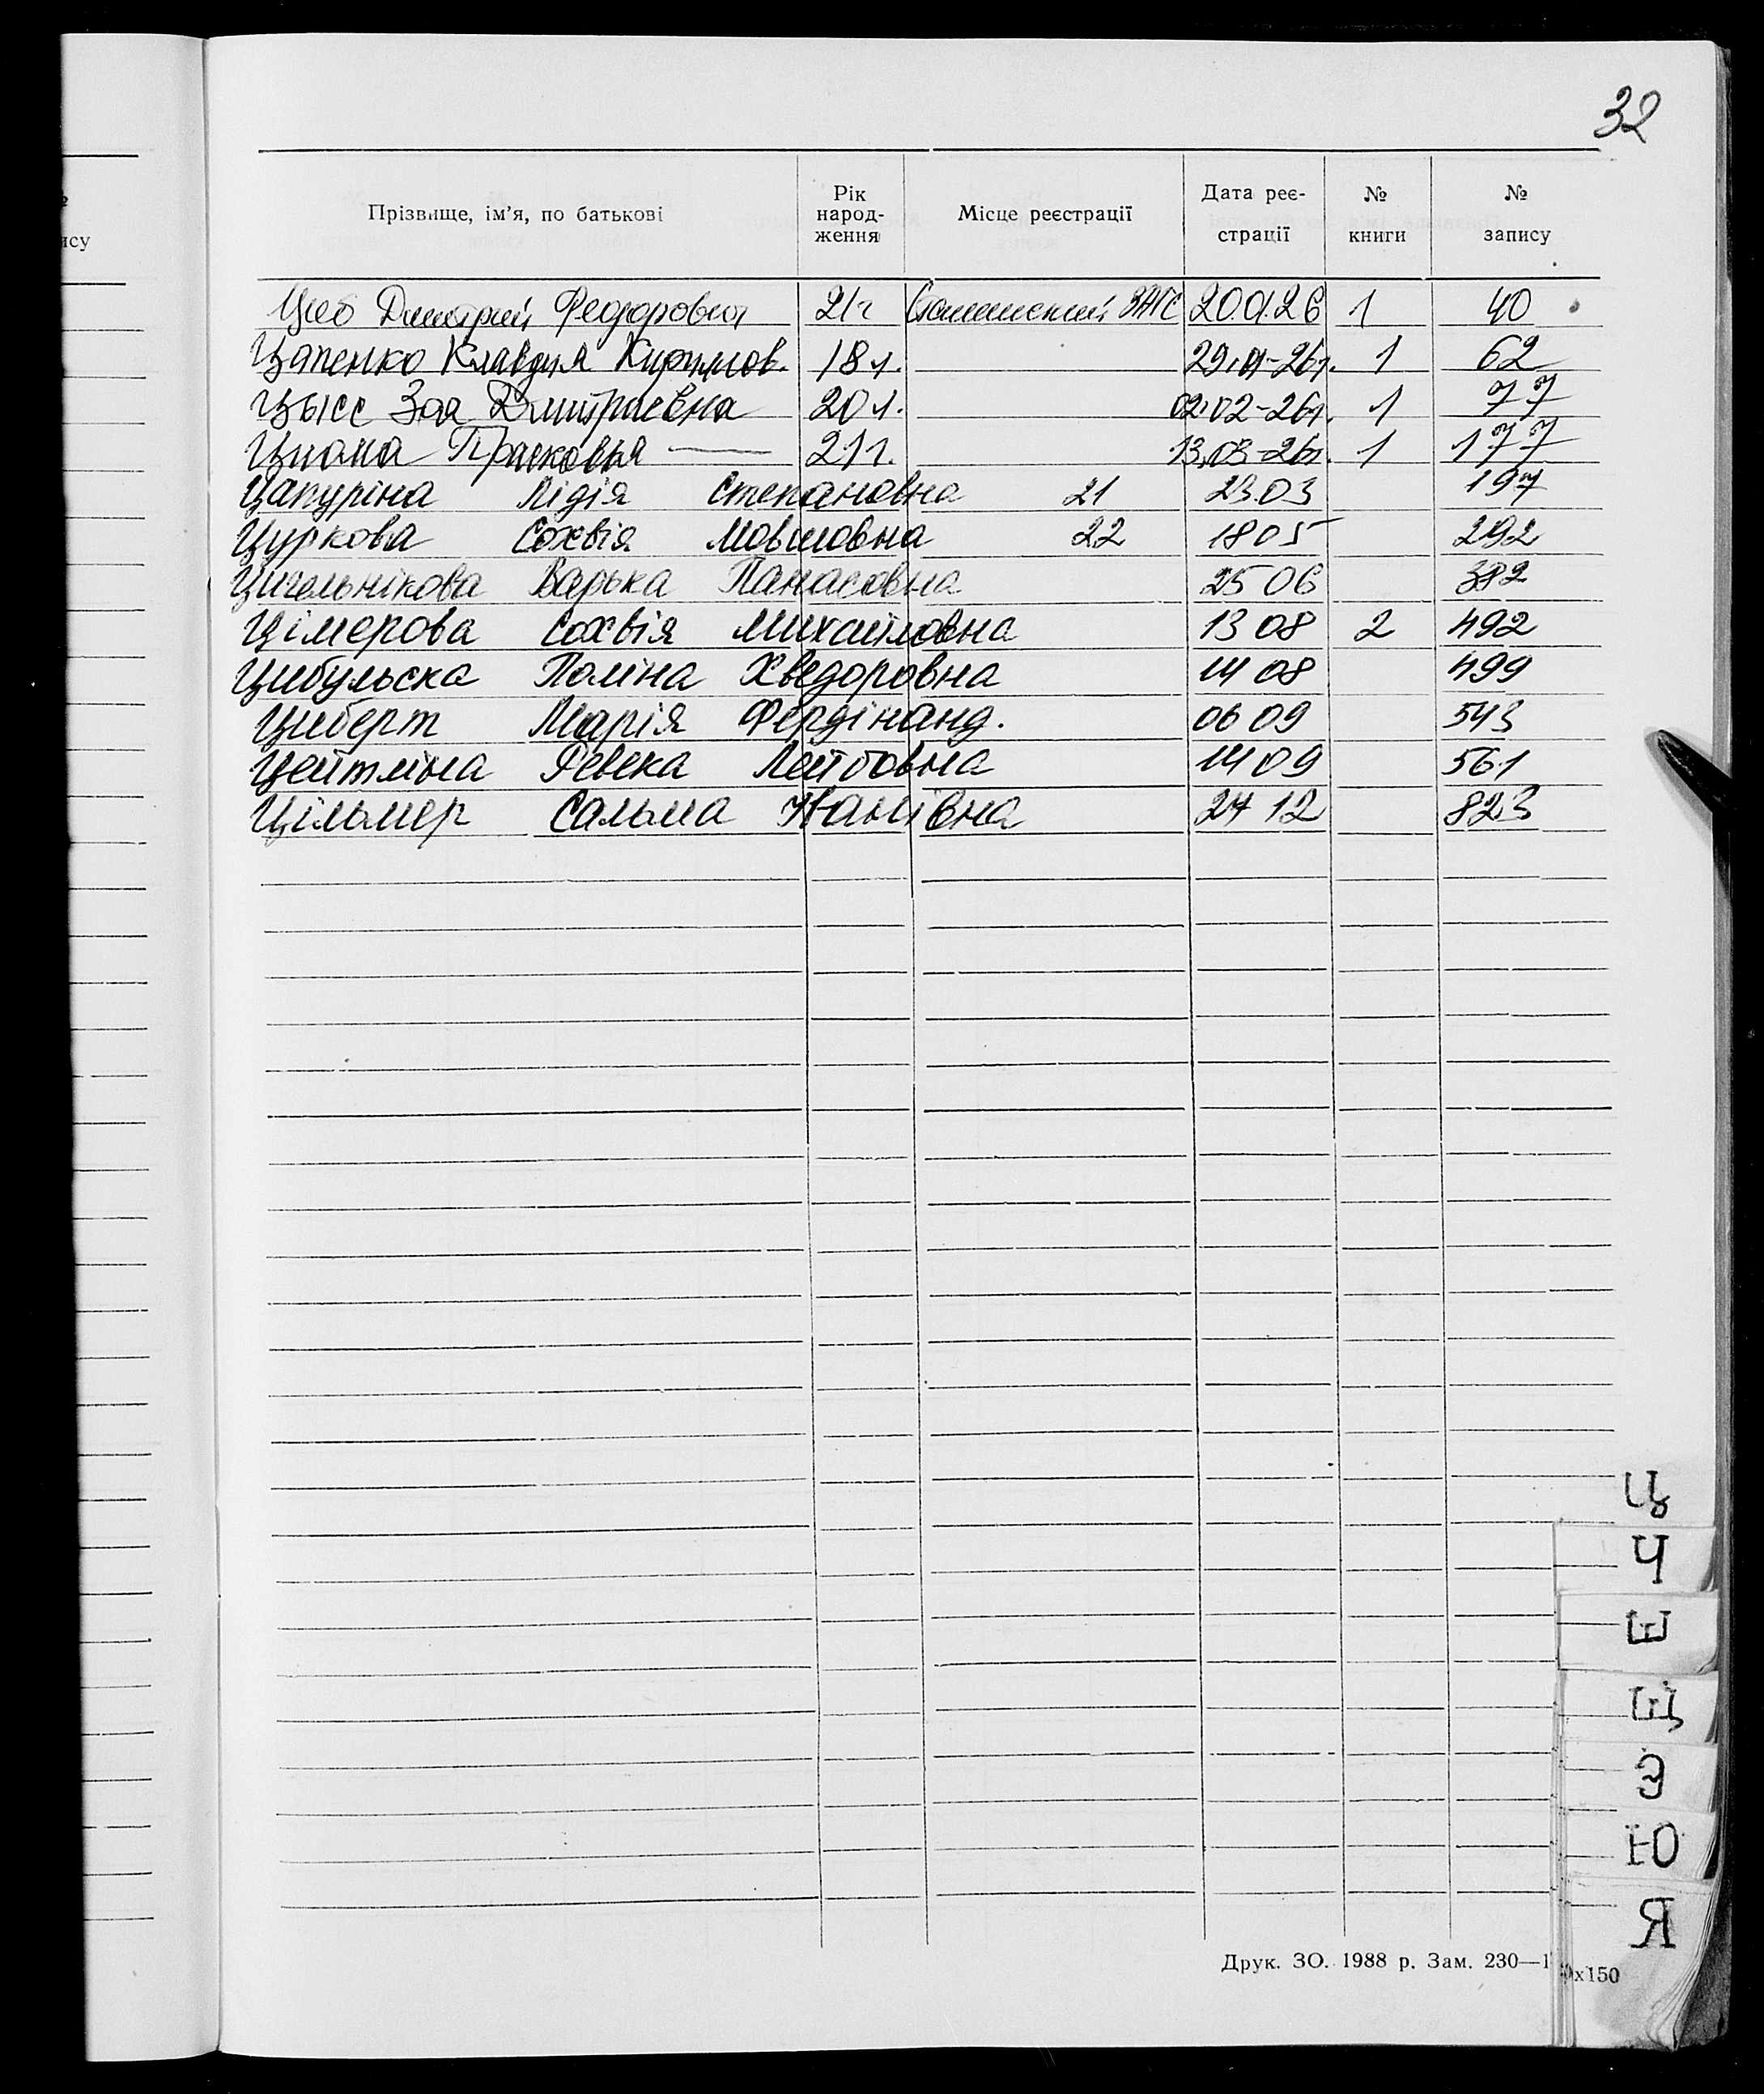 32
№
ису
Прізвище, ім'я, по батькові Рік народ-ження Місце реєстрації Дата реє-страції № книги № запису
Дмитрий Федорович 21г ЗАГС 20.01.26 1 40
Цапенко Клавдия 18 л. 29.01-26г. 1 62
Цысс Зоя Дмитриевна 20 л. 02.02-26г. 1 77
Цюма Прасковья — 21г. 13.03-26г. 1 177
Цапуріна Лідія Степановна 21 23.03 197
Цуркова Сохвія Мовшовна 22 18 05 292
Цигельнікова Варька Панасовна 25 06 382
Цімерова Сохвія Михайловна 13 08 2 492
Цибульска Поліна Хведоровна 14 08 499
Циберт Марія Фердінанд. 06 09 543
Цейтліна Ревека Лейбовна 14 09 561
Цільмер Сальма Іванівна 24 12 823
Ц
Ч
Ш
Щ
Э
Ю
Я
Друк. ЗО. 1988 р. Зам. 230—1
х150